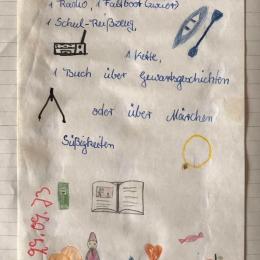 1 Radio, 1 Faltboot (zweier)
1 Schul-Reißzeug,
1 Kette,
1 Buch über Gewaltsgeschichten
oder über Märchen
Süßigkeiten